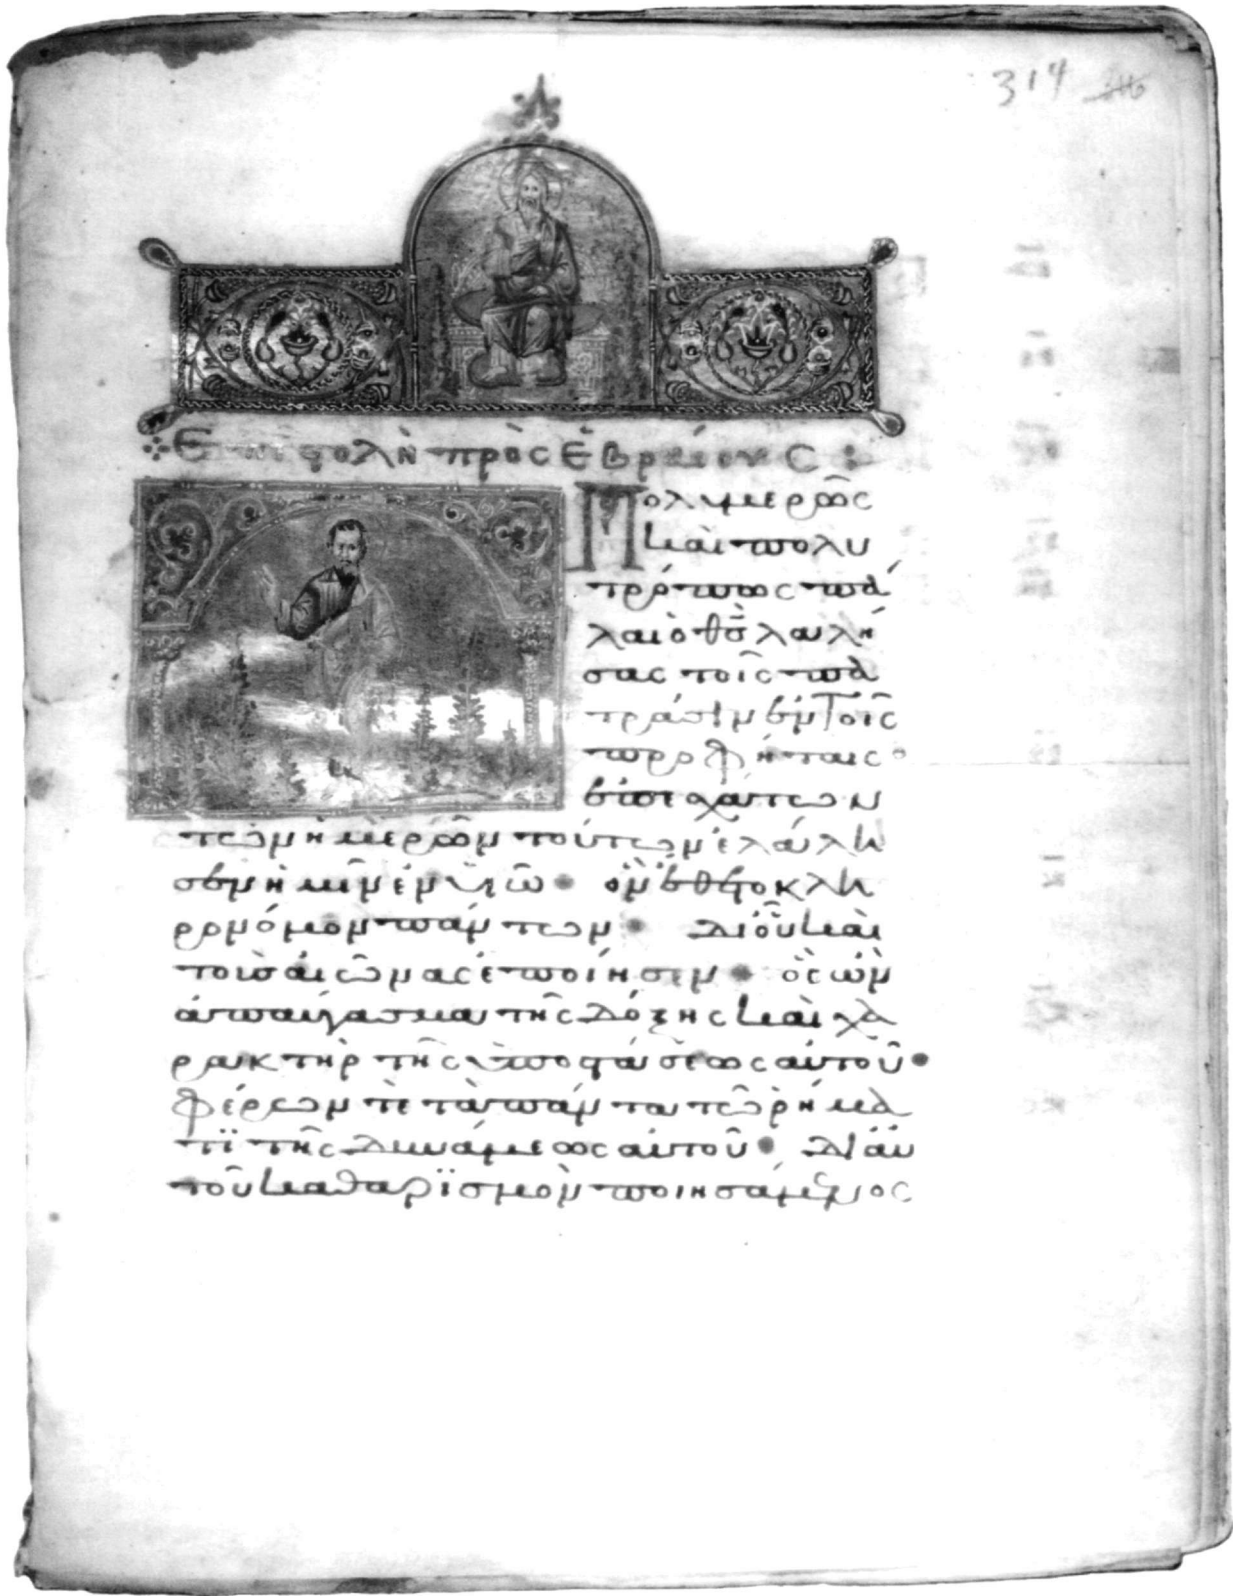 314
Ἐπιστολὴ πρὸς Ἑβραίους
Πολυμερῶς
καὶ πολυ
τρόπως πά
λαι ὁ θς λαλή
σας τοῖς πα
τράσιν ἐν τοῖς
προφήταις
ἐπ' ἐσχάτων
τῶν ἡμερῶν τούτων ἐλάλη
σεν ἡμῖν ἐν υἱῷ • ὃν ἔθετο κλη
ρονόμον πάντων • δι' οὗ καὶ
τοὺς αἰῶνας ἐποίησεν • ὃς ὢν
ἀπαύγασμα τῆς δόξης καὶ χα
ρακτὴρ τῆς ὑποστάσεως αὐτοῦ •
φέρων τε τὰ πάντα τῷ ῥήμα
τϊ τῆς δυνάμεως αὐτοῦ • δι' αὐ
τοῦ καθαρϊσμὸν ποιησάμενος